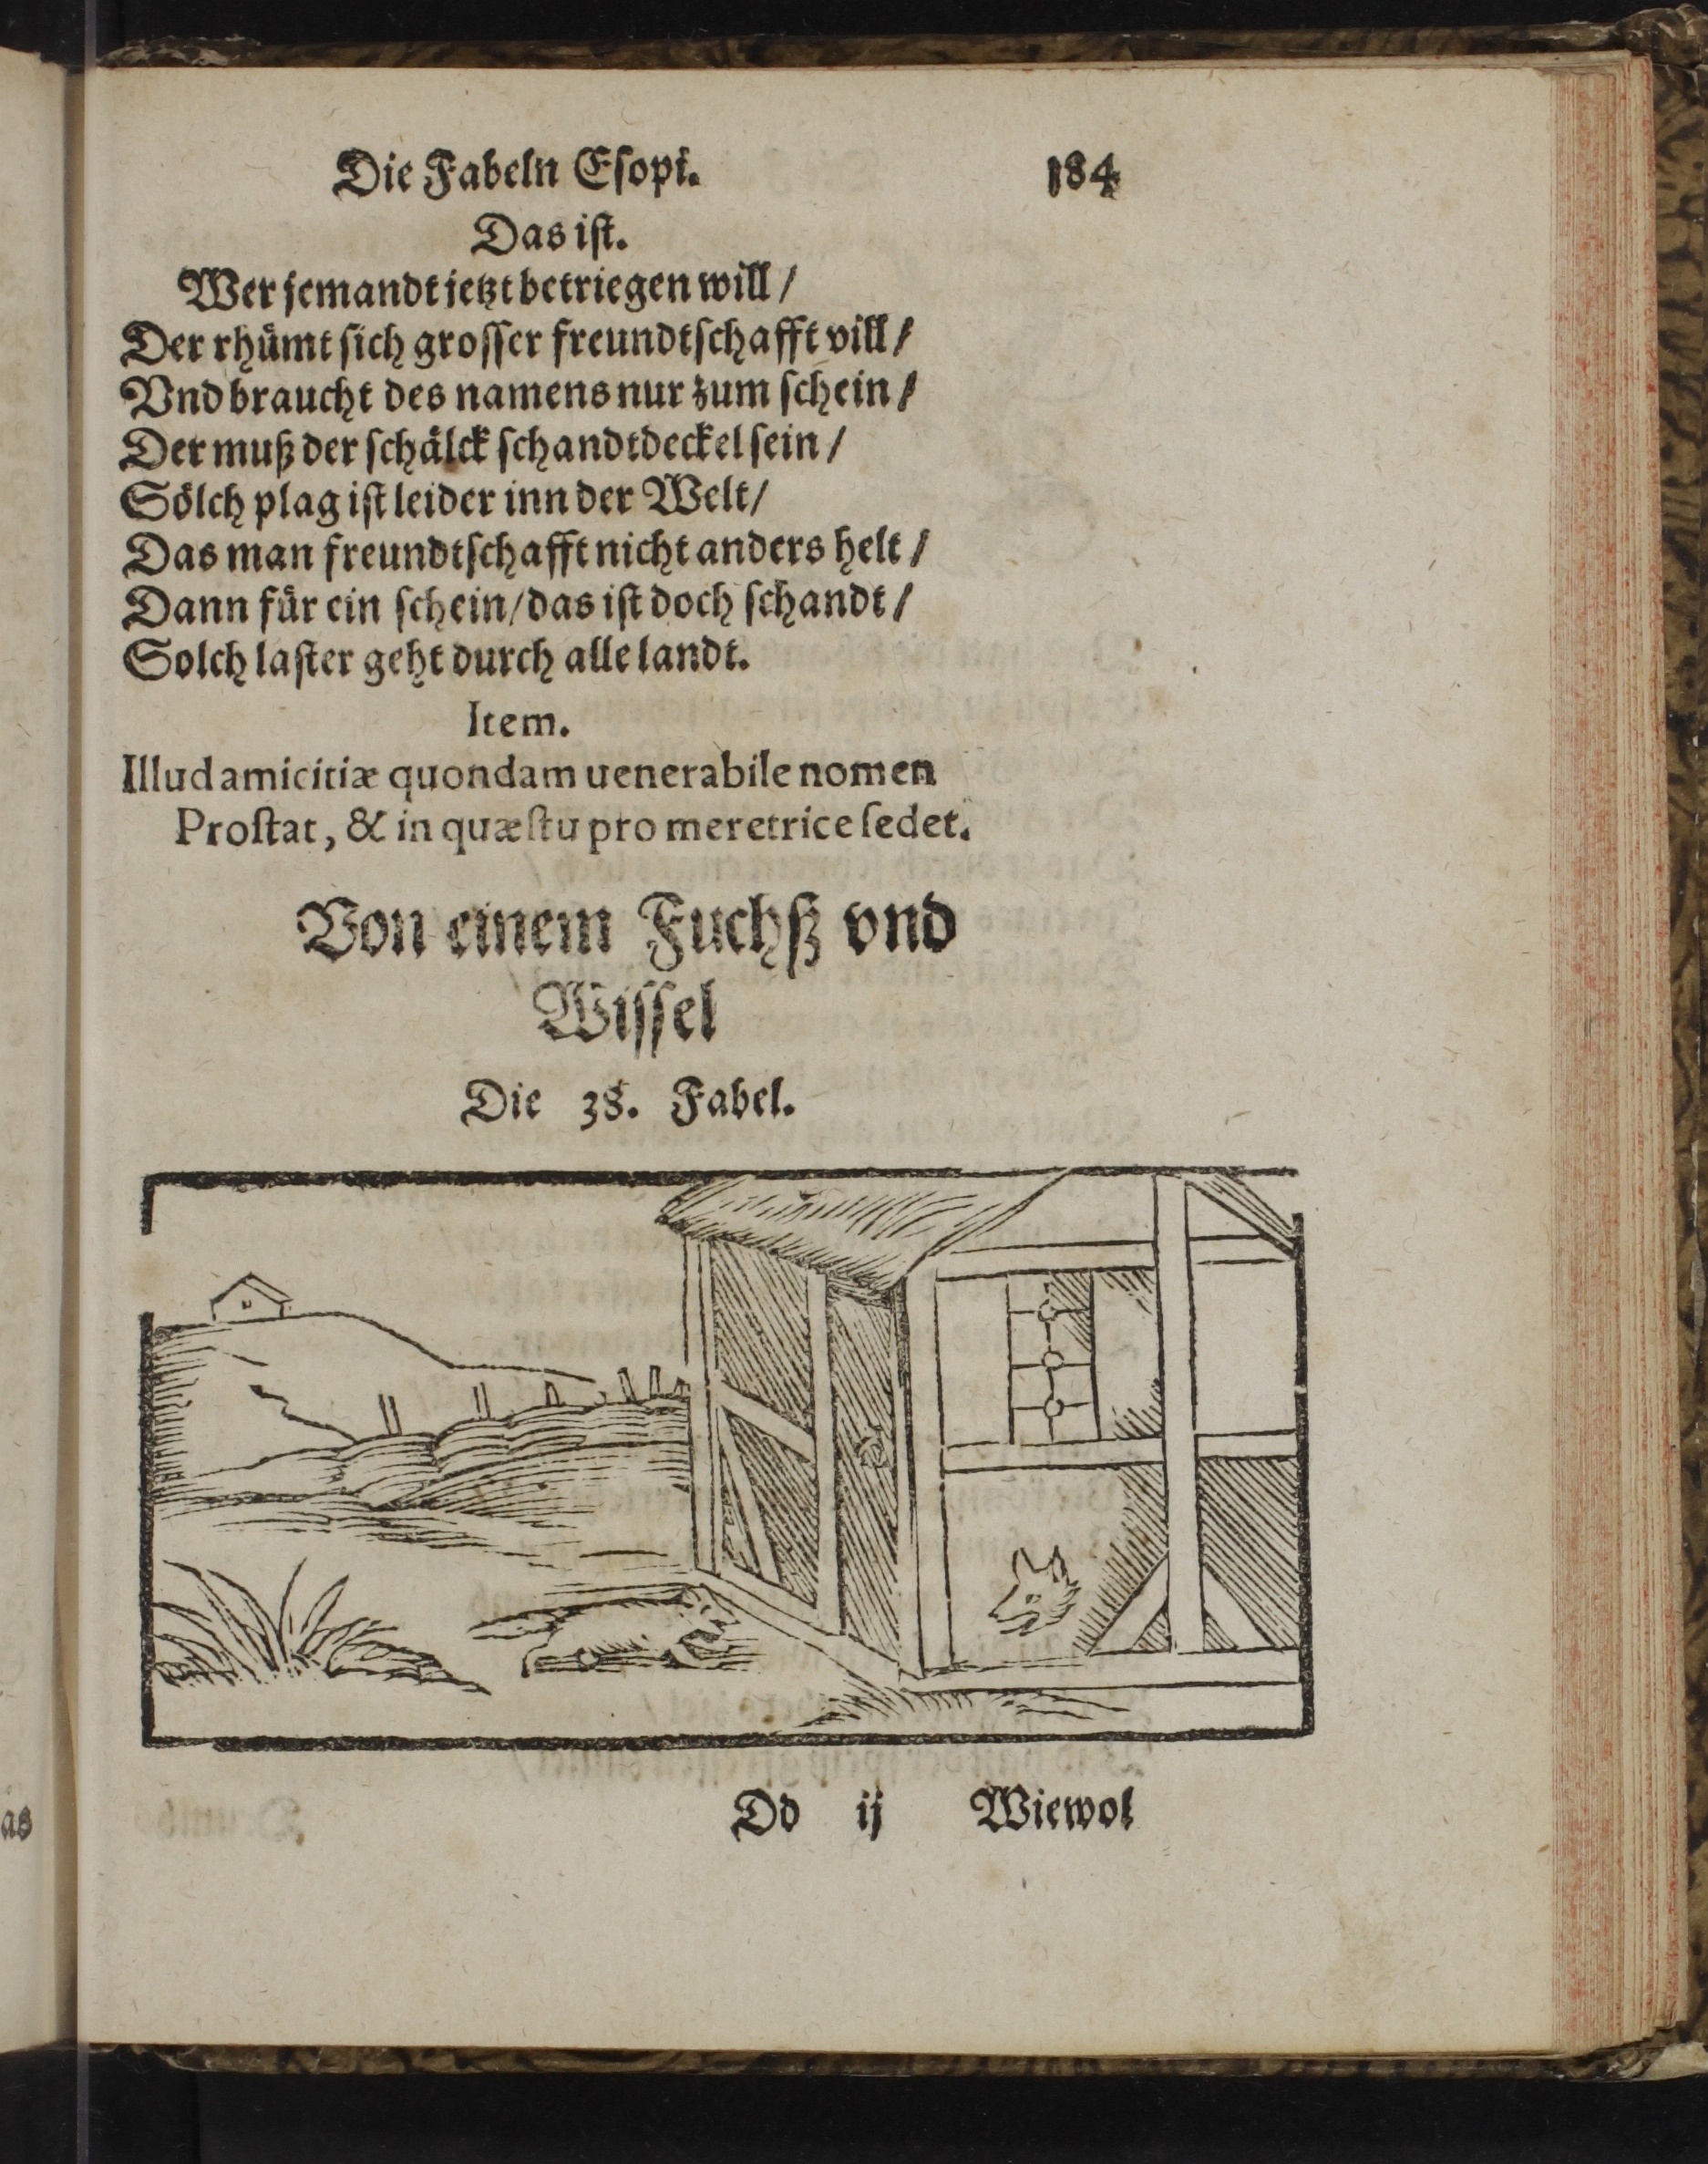 Die Fabeln Esopi. 184
Das ist.
Wer jemandt jetzt betriegen will /
Der rhümt sich grosser freundtschafft vill /
Vnd braucht des namens nur zum schein /
Der muß der schälck schandtdeckel sein /
Sölch plag ist leider inn der Welt /
Das man freundtschafft nicht anders helt /
Dann für ein schein / das ist doch schandt /
Solch laster geht durch alle landt.
Item.
Illud amicitiæ quondam uenerabile nomen
Prostat, & in quæstu pro meretrice sedet.
Von einem Fuchß vnd
Wissel
Die 38. Fabel.
Dd ij Wiewol
as